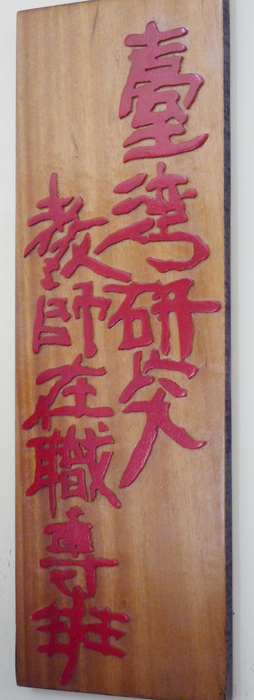 臺灣研究
教師在職專班